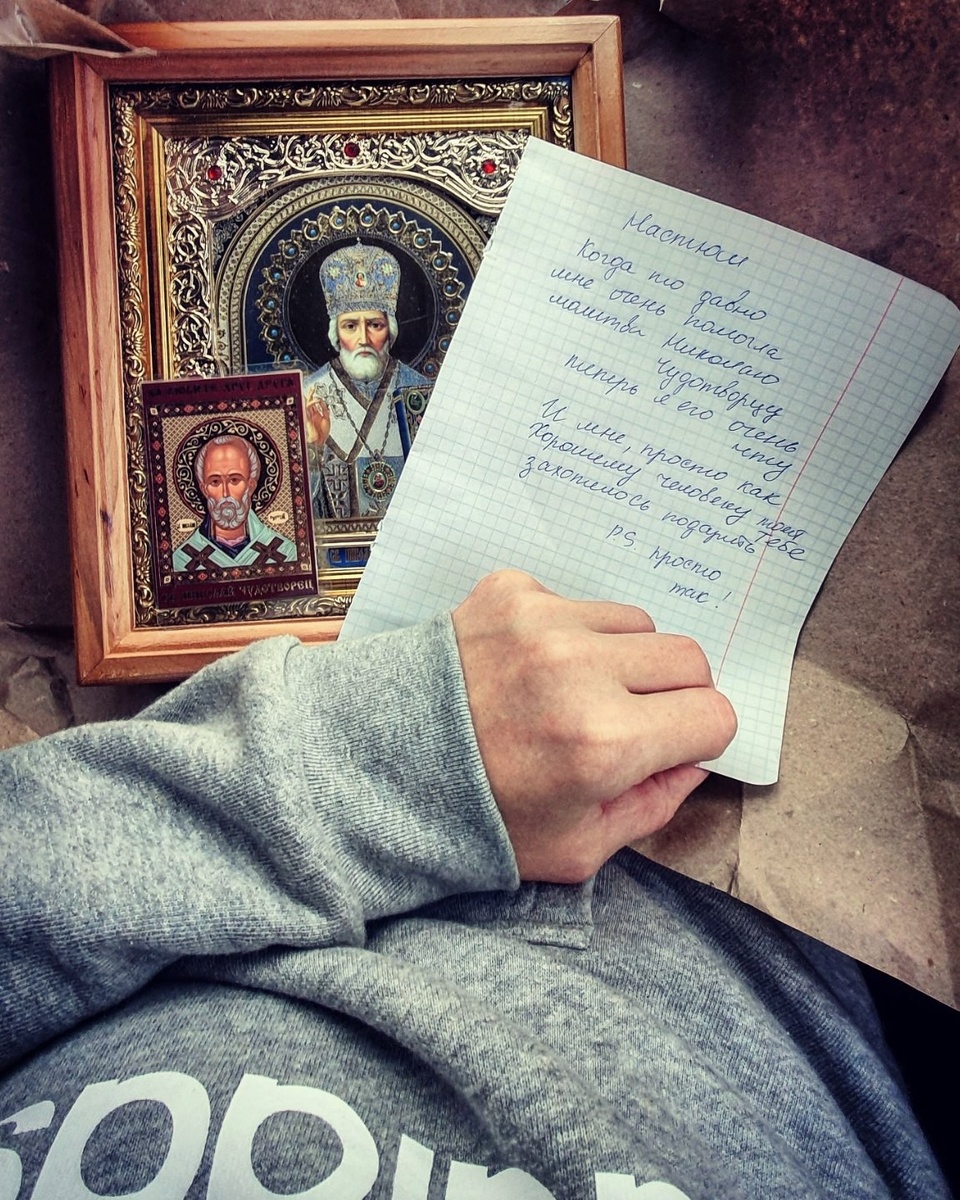 ДА ЛЮБИТЕ ДРУГ ДРУГА
НИКОЛАЙ ЧУДОТВОРЕЦ
Настюш
Когда то давно
мне очень помогла
молитва Николаю
Чудотворцу
теперь я его очень
чту
И мне, просто как
Хорошему человеку
захотелось подарить Тебе
P.S. просто
так!